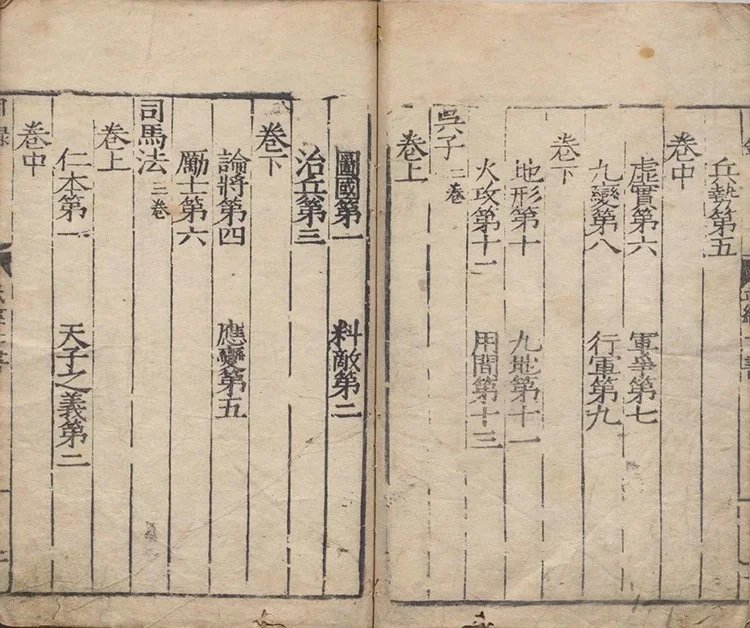 兵勢第五
卷中
虛實第六 軍爭第七
九變第八 行軍第九
卷下
地形第十 九地第十一
火攻第十二 用間第十三
吳子 二卷
卷上
圖國第一 料敵第二
治兵第三
卷下
論將第四 應變第五
勵士第六
司馬法 三卷
卷上
仁本第一 天子之義第二
卷中